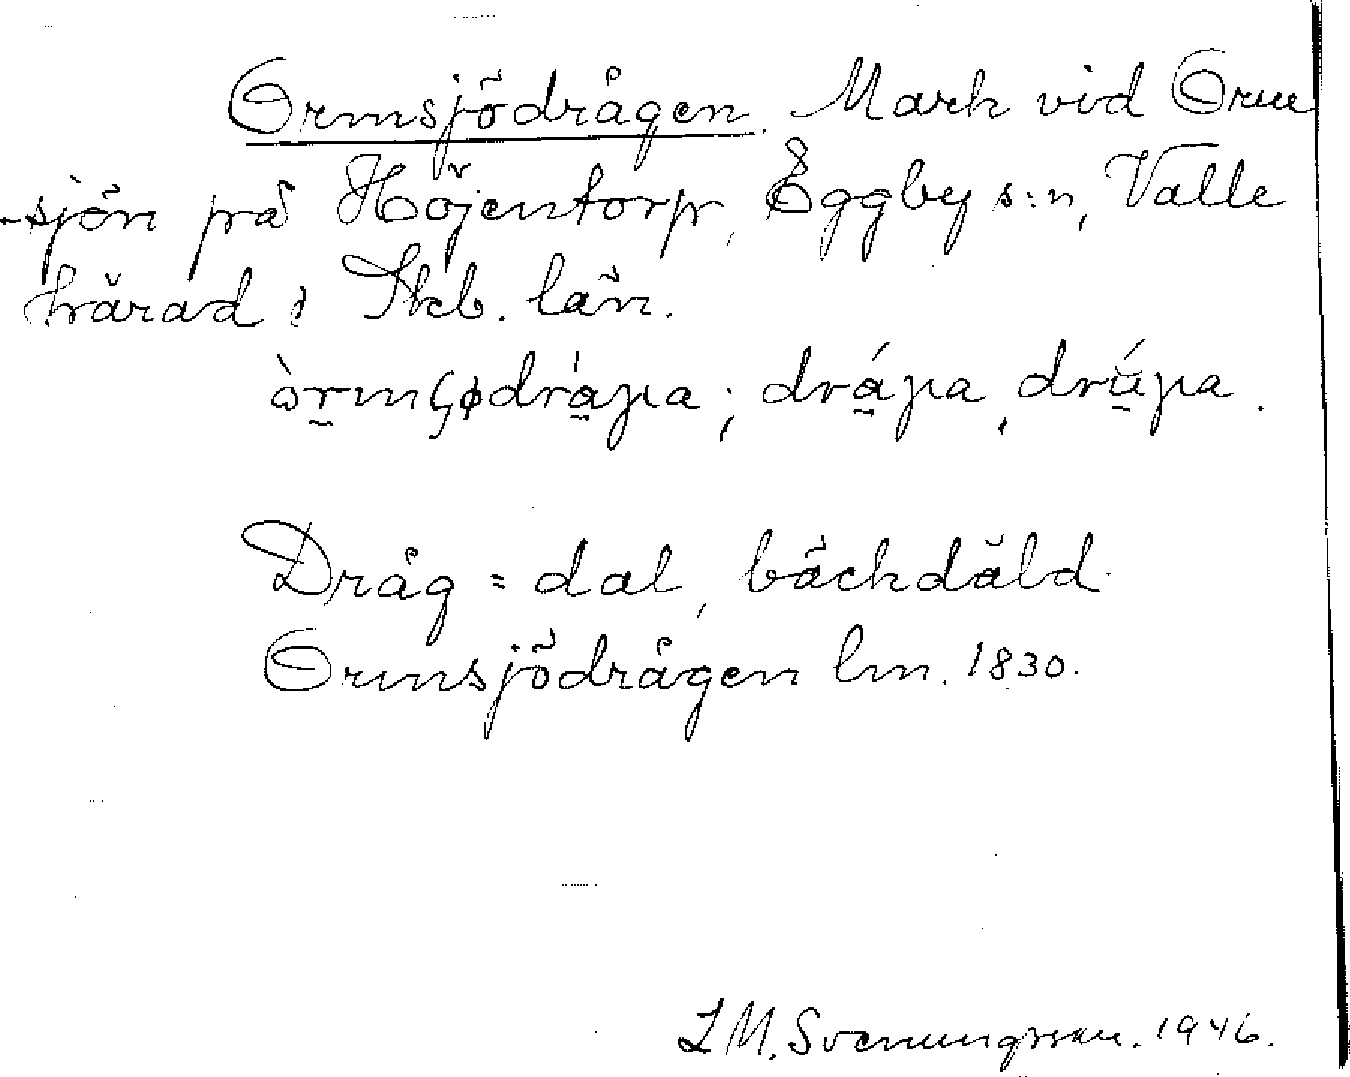 Ormsjödrågen. Mark vid Orm
-sjön på Höjentorp, Eggby s:n, Valle
härad i Skb. län.
Dråg = dal, bäckdäld.
Ormsjödrågen lm. 1830.
L M. Svenungsson. 1946.